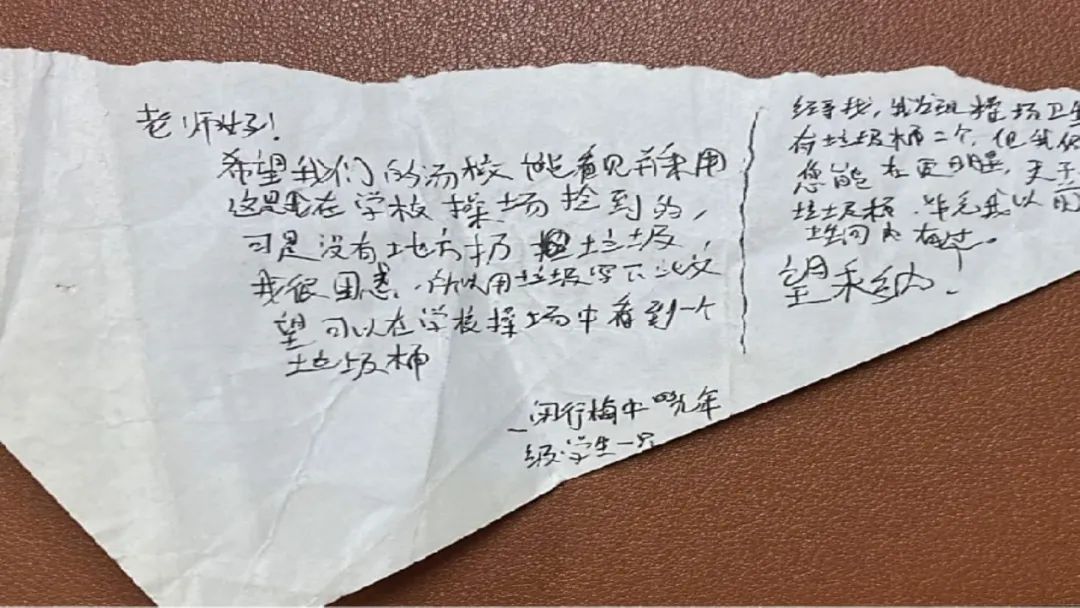 老师好!
希望我们的汤校能看见并采用
这是我在学校操场捡到的,
可是没有地方扔垃圾,
我很困惑,所以用垃圾写下此文
望可以在学校操场中看到一个
垃圾桶
闵行梅中 九年
级学生一
经寻找,我发现操场卫生
有垃圾桶二个,但我
您能在更明显,
垃圾桶,毕竟我以
望采纳.